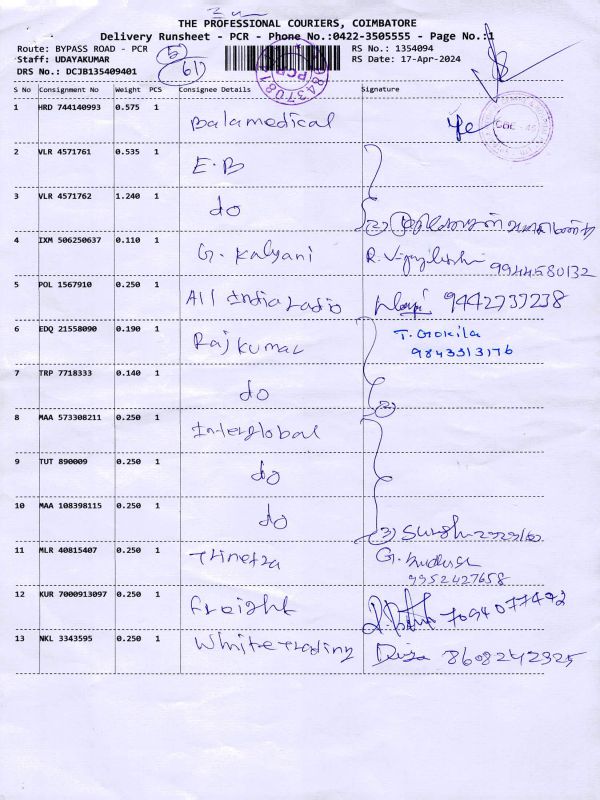 THE PROFESSIONAL COURIERS, COIMBATORE
Delivery Runsheet - PCR - Phone No.:0422-3505555 - Page No.:1
Route: BYPASS ROAD - PCR
RS No.: 1354094
Staff: UDAYAKUMAR
RS Date: 17-Apr-2024
DRS No.: DCJB135409401
S No Consignment No Weight PCS Consignee Details Signature
1 HRD 744140993 0.575 1 Balamedical
2 VLR 4571761 0.535 1 E.B
3 VLR 4571762 1.240 1 do (2)
4 IXM 506250637 0.110 1 G. Kalyani R. Vijayalakshmi 9944580132
5 POL 1567910 0.250 1 All India radio 9442733238
6 EDQ 21558090 0.190 1 Rajkumar T. Gokila
9843313176
7 TRP 7718333 0.140 1 do (2)
8 MAA 573308211 0.250 1 Interglobal
9 TUT 890009 0.250 1 do
10 MAA 108398115 0.250 1 do (3) Suresh
11 MLR 40815407 0.250 1 Trinetra G.
9952427658
12 KUR 7000913097 0.250 1 freight 7094077492
13 NKL 3343595 0.250 1 White trading 8608242325